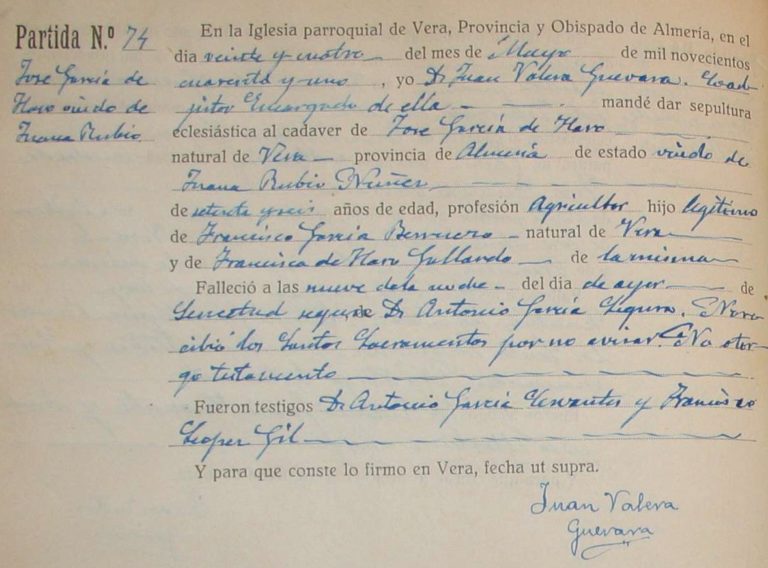 Partida N.º 74
José García de
Haro viudo de
Juana Rubio
En la Iglesia parroquial de Vera, Provincia y Obispado de Almería, en el
dia veinte y cuatro del mes de Mayo de mil novecientos
cuarenta y uno, yo D. Juan Valera Guevara. Coad-
jutor Encargado de ella mandé dar sepultura
eclesiástica al cadaver de Jose García de Haro
natural de Vera provincia de Almería de estado viudo de
Juana Rubio Núñez
de setenta y seis años de edad, profesión Agricultor hijo legítimo
de Francisco Garcia Berruezo natural de Vera
y de Francisca de Haro Gallardo de la misma
Falleció a las nueve de la noche del dia de ayer de
Senectud segun D. Antonio García Segura. No re-
cibió los Santos Sacramentos por no avisar. No otor-
go testamento
Fueron testigos D. Antonio García Cervantes y Francisco
Lopez Gil
Y para que conste lo firmo en Vera, fecha ut supra.
Juan Valera
Guevara